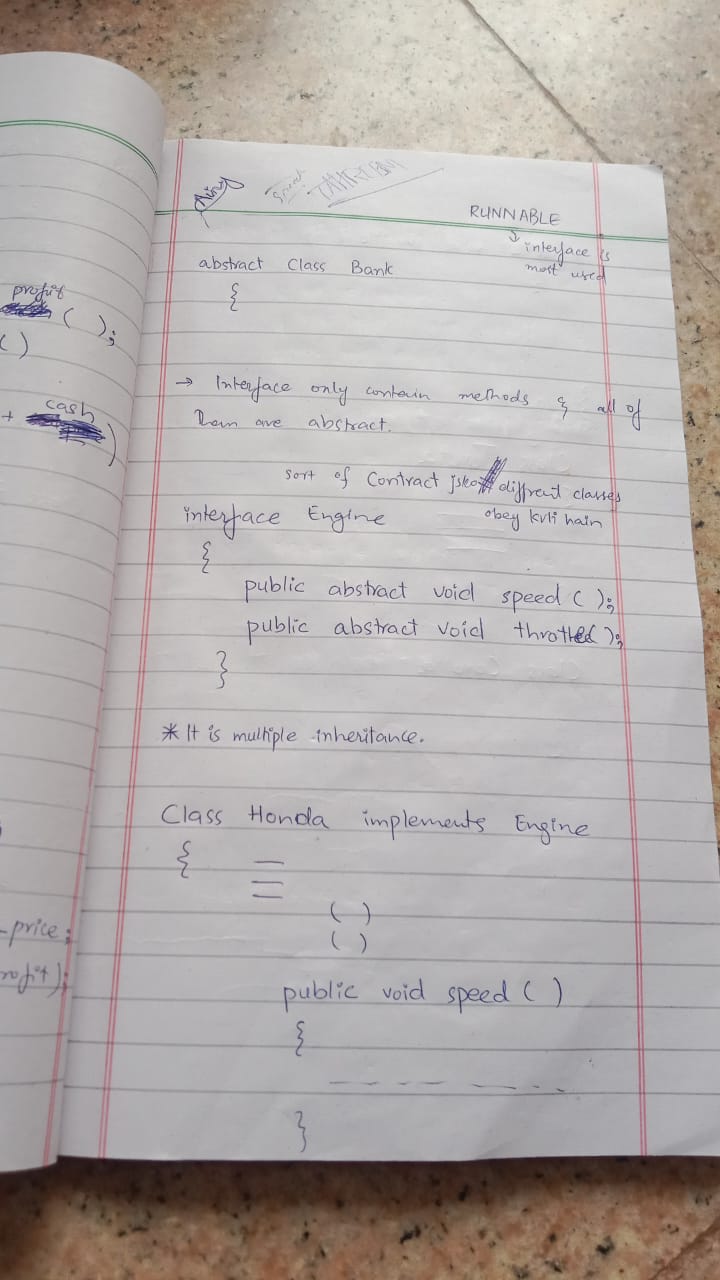 RUNNABLE
↓ interface is
most used
abstract Class Bank
{
profit
( );
( )
→ Interface only contain methods & all of
them are abstract.
+ cash )
sort of Contract jsko diffrent classes
obey krti hain
interface Engine
{
public abstract void speed ( );
public abstract void throttled );
}
* It is multiple inheritance.
Class Honda implements Engine
{
( )
( )
-price;
public void speed ( )
{
}